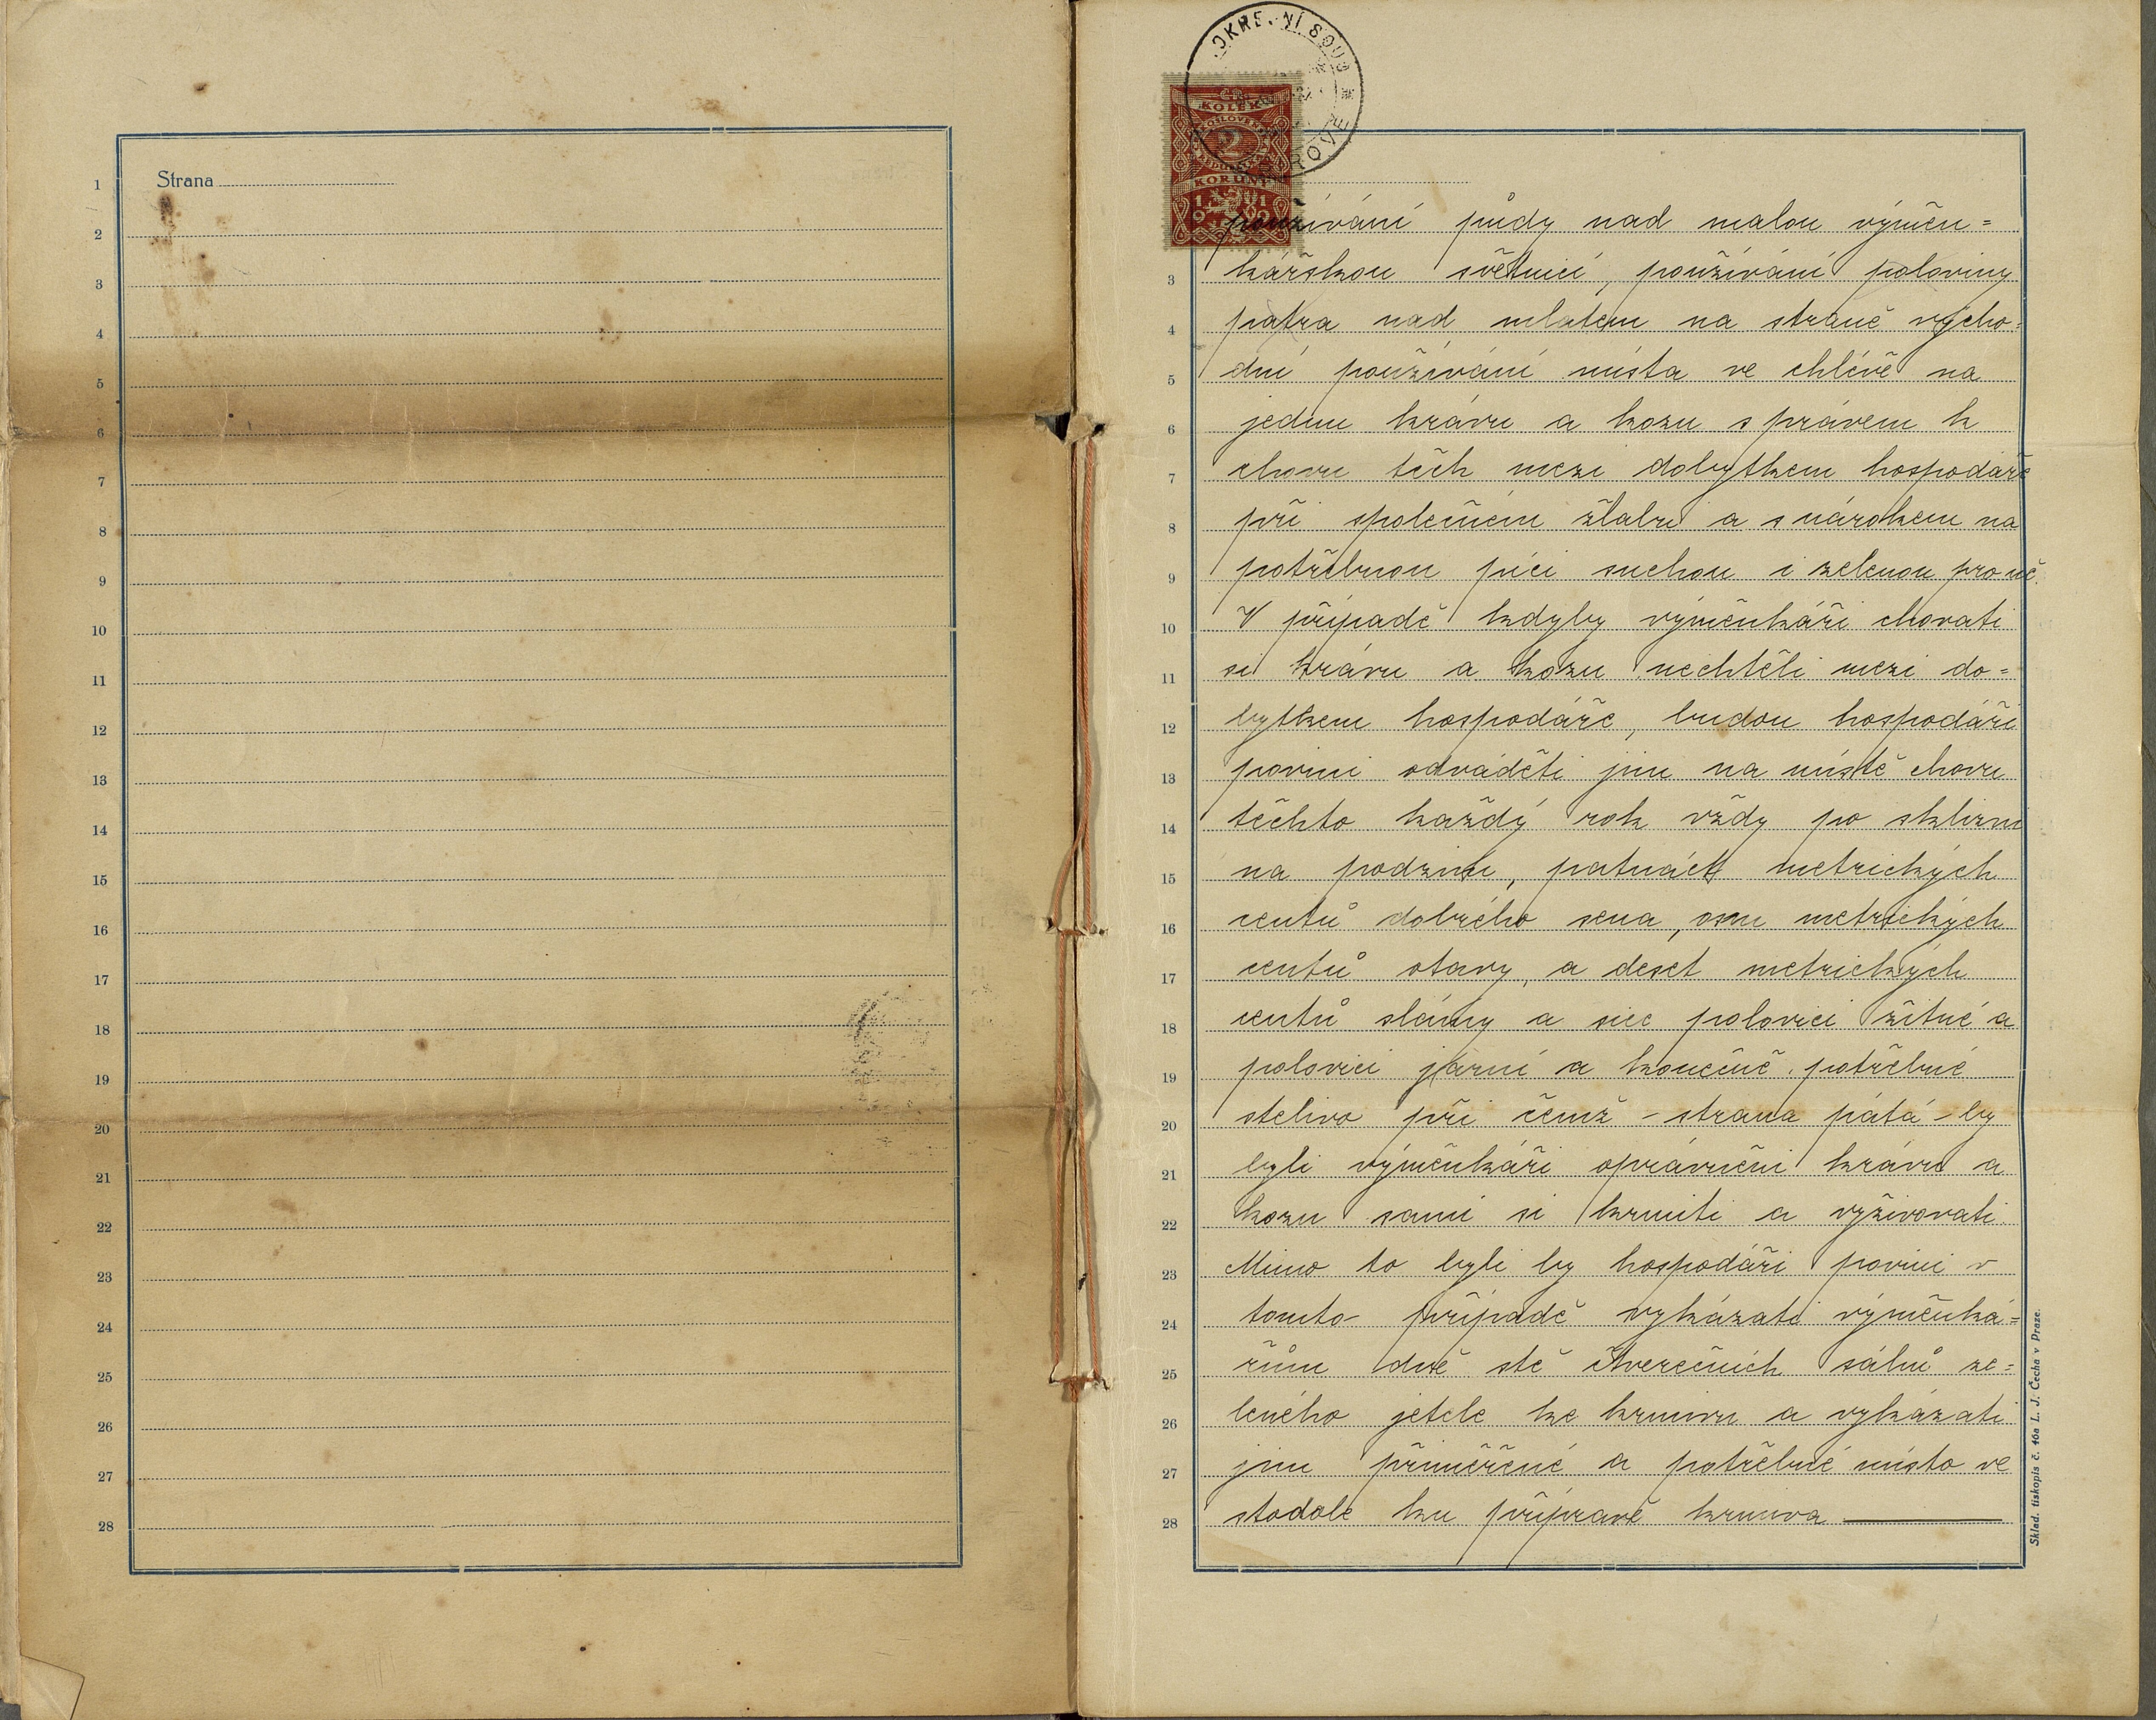 Strana
1
2
3
4
5
6
7
8
9
10
11
12
13
14
15
16
17
18
19
20
21
22
23
24
25
26
27
28
OKRESNÍ SOUD
ROVĚ
KOLEK
2
KORUNY
používání půdy nad malou výměn=
3 kářskou světnicí, používání poloviny
4 patra nad mlatem na straně výcho=
5 dní používání místa ve chlévě na
6 jednu krávu a kozu s právem k
7 chovu těch mezi dobytkem hospodáře
8 při společném žlabu a s nárokem na
9 potřebnou píci suchou i zelenou pro ně.
10 V případě kdyby výměnkáři chovati
11 si krávu a kozu nechtěli mezi do=
12 bytkem hospodáře, budou hospodáři
13 povini odváděti jim na místě chovu
14 těchto každý rok vždy po sklizni
15 na podzim, patnáct metrických
16 centů dobrého sena, osm metrických
17 centů otavy, a deset metrických
18 centů slámy a sice polovici žitné a
19 polovici jarní a konečně potřebné
20 stelivo při čemž – strana pátá – by
21 byli výměnkáři oprávněni krávu a
22 kozu sami si krmiti a vyživovati.
23 Mimo to byli by hospodáři povini v
24 tomto případě vykázati výměnká=
25 řům dvě stě čtverečních sáhů ze=
26 leného jetele ke krmivu a vykázati
27 jim přiměřené a potřebné místo ve
28 stodole ku přípravě krmiva
Sklad. tiskopis č. 46a L. J. Čecha v Praze.